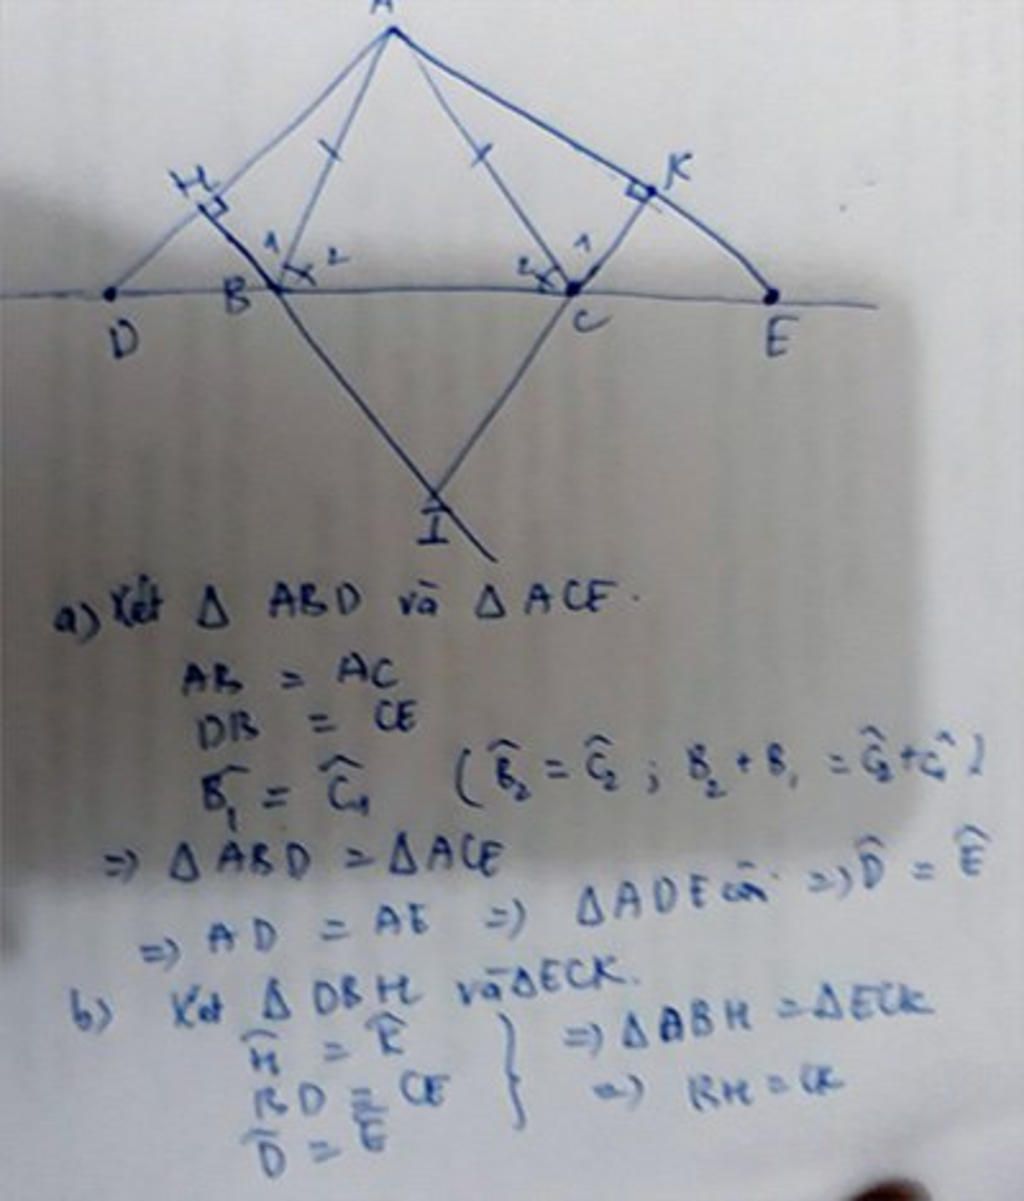 A
H
K
1 2
2 1
D
B
C
E
I
a) Xét Δ ABD và Δ ACE.
AB = AC
DB = CE
B̂₁ = Ĉ₁ (B̂₂ = Ĉ₂ ; B₂ + B₁ = Ĉ₂ + Ĉ₁)
=> Δ ABD = Δ ACE
=> AD = AE => Δ ADE cân => D̂ = Ê
b) Xét Δ DBH và Δ ECK.
Ĥ = K̂
BD = CE
D̂ = Ê
=> Δ ABH = Δ ECK
=> BH = CK